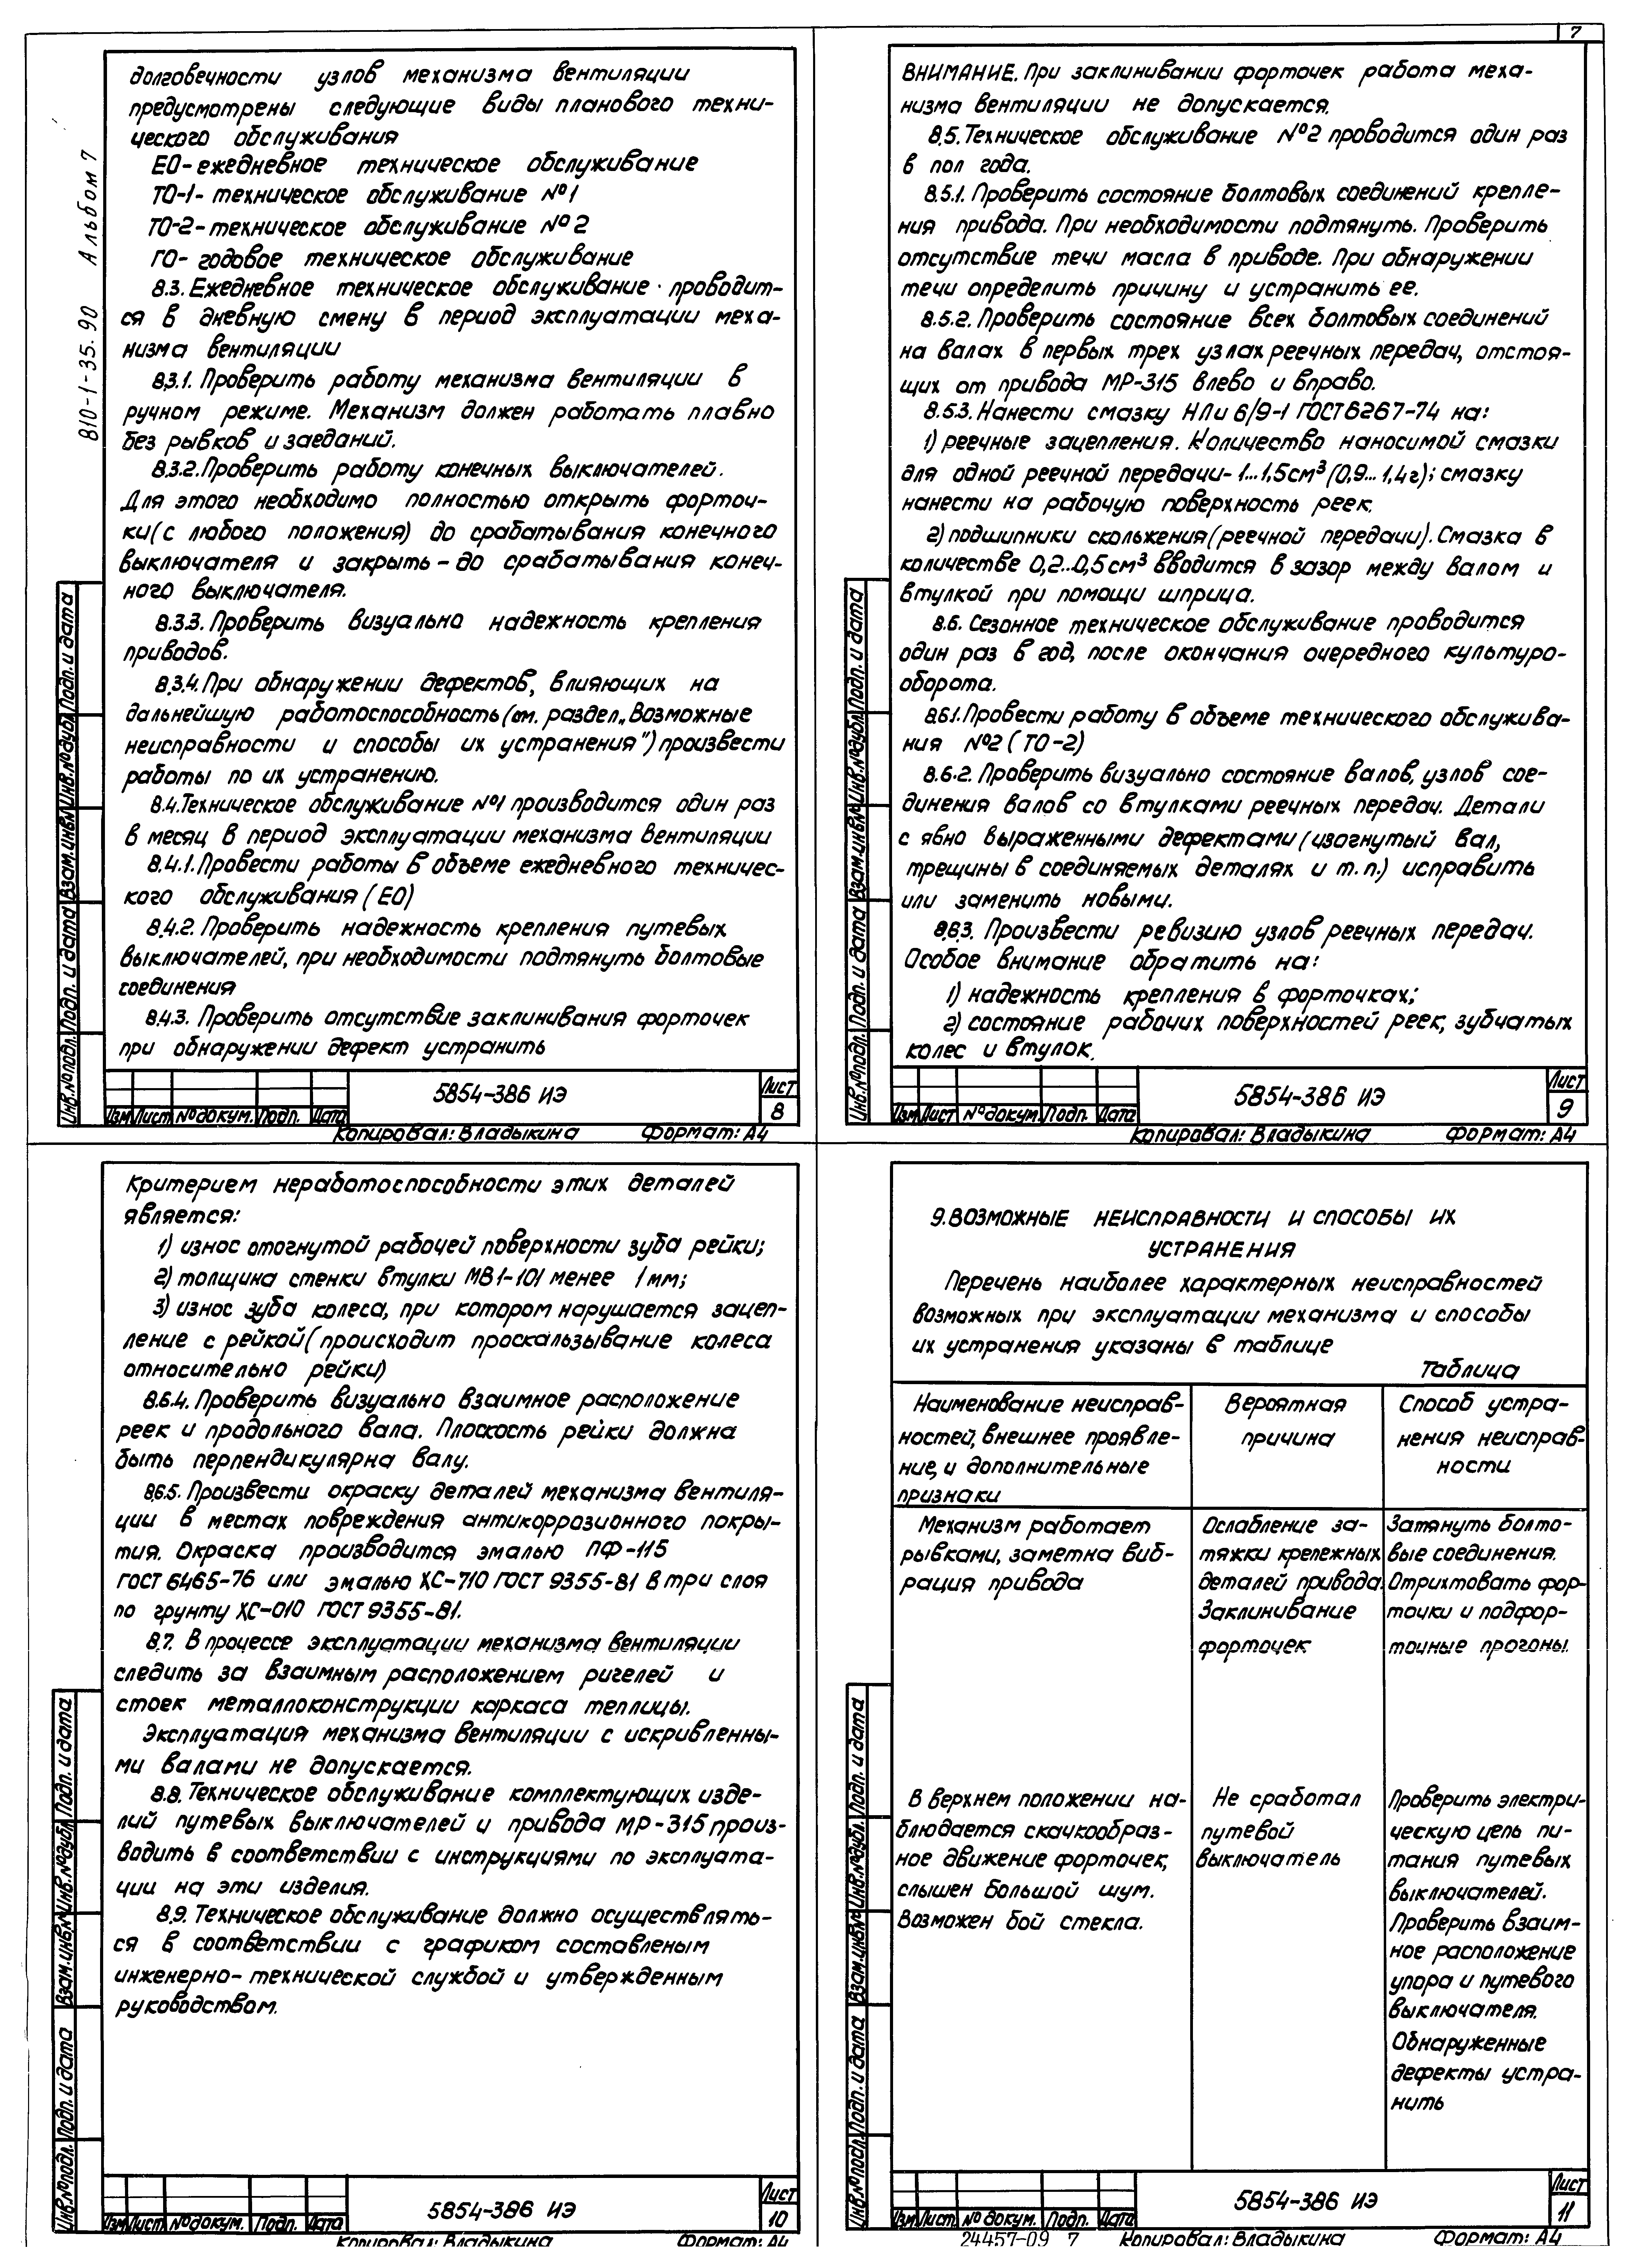 7
810-1-35.90 Альбом 7
долговечности узлов механизма вентиляции
предусмотрены следующие виды планового техни-
ческого обслуживания
ЕО-ежедневное техническое обслуживание
ТО-1-техническое обслуживание №1
ТО-2-техническое обслуживание №2
ГО-годовое техническое обслуживание
8.3. Ежедневное техническое обслуживание проводит-
ся в дневную смену в период эксплуатации меха-
низма вентиляции
8.3.1. Проверить работу механизма вентиляции в
ручном режиме. Механизм должен работать плавно
без рывков и заеданий.
8.3.2. Проверить работу конечных выключателей.
Для этого необходимо полностью открыть форточ-
ки (с любого положения) до срабатывания конечного
выключателя и закрыть - до срабатывания конеч-
ного выключателя.
8.3.3. Проверить визуально надежность крепления
приводов.
8.3.4. При обнаружении дефектов, влияющих на
дальнейшую работоспособность (см. раздел „Возможные
неисправности и способы их устранения") произвести
работы по их устранению.
8.4. Техническое обслуживание №1 производится один раз
в месяц в период эксплуатации механизма вентиляции
8.4.1. Провести работы в объеме ежедневного техничес-
кого обслуживания (ЕО)
8.4.2. Проверить надежность крепления путевых
выключателей, при необходимости подтянуть болтовые
соединения
8.4.3. Проверить отсутствие заклинивания форточек
при обнаружении дефект устранить
Инв.№подл. Подп. и дата Взам.инв.№ Инв.№дубл. Подп. и дата
5854-386 ИЭ
Лист
8
Изм Лист №докум. Подп. Дата
Копировал: Владыкина Формат: А4
ВНИМАНИЕ. При заклинивании форточек работа меха-
низма вентиляции не допускается.
8.5. Техническое обслуживание №2 проводится один раз
в пол года.
8.5.1. Проверить состояние болтовых соединений крепле-
ния привода. При необходимости подтянуть. Проверить
отсутствие течи масла в приводе. При обнаружении
течи определить причину и устранить ее.
8.5.2. Проверить состояние всех болтовых соединений
на валах в первых трех узлах реечных передач, отстоя-
щих от привода МР-315 влево и вправо.
8.5.3. Нанести смазку НЛи 6/9-1 ГОСТ6267-74 на:
1) реечные зацепления. Количество наносимой смазки
для одной реечной передачи - 1...1,5см³ (0,9...1,4г); смазку
нанести на рабочую поверхность реек.
2) подшипники скольжения (реечной передачи). Смазка в
количестве 0,2...0,5см³ вводится в зазор между валом и
втулкой при помощи шприца.
8.6. Сезонное техническое обслуживание проводится
один раз в год, после окончания очередного культуро-
оборота.
8.6.1. Провести работу в объеме технического обслужива-
ния №2 (ТО-2)
8.6.2. Проверить визуально состояние валов, узлов сое-
динения валов со втулками реечных передач. Детали
с явно выраженными дефектами (изогнутый вал,
трещины в соединяемых деталях и т.п.) исправить
или заменить новыми.
8.6.3. Произвести ревизию узлов реечных передач.
Особое внимание обратить на:
1) надежность крепления в форточках;
2) состояние рабочих поверхностей реек, зубчатых
колес и втулок.
Инв.№подл. Подп. и дата Взам.инв.№ Инв.№дубл. Подп. и дата
5854-386 ИЭ
Лист
9
Изм Лист №докум. Подп. Дата
Копировал: Владыкина Формат: А4
Критерием неработоспособности этих деталей
является:
1) износ отогнутой рабочей поверхности зуба рейки;
2) толщина стенки втулки МВ1-101 менее 1 мм;
3) износ зуба колеса, при котором нарушается зацеп-
ление с рейкой (происходит проскальзывание колеса
относительно рейки)
8.6.4. Проверить визуально взаимное расположение
реек и продольного вала. Плоскость рейки должна
быть перпендикулярна валу.
8.6.5. Произвести окраску деталей механизма вентиля-
ции в местах повреждения антикоррозионного покры-
тия. Окраска производится эмалью ПФ-115
ГОСТ 6465-76 или эмалью ХС-710 ГОСТ 9355-81 в три слоя
по грунту ХС-010 ГОСТ 9355-81.
8.7. В процессе эксплуатации механизма вентиляции
следить за взаимным расположением ригелей и
стоек металлоконструкции каркаса теплицы.
Эксплуатация механизма вентиляции с искривленны-
ми валами не допускается.
8.8. Техническое обслуживание комплектующих изде-
лий путевых выключателей и привода МР-315 произ-
водить в соответствии с инструкциями по эксплуата-
ции на эти изделия.
8.9. Техническое обслуживание должно осуществлять-
ся в соответствии с графиком составленым
инженерно-технической службой и утвержденным
руководством.
Инв.№подл. Подп. и дата Взам.инв.№ Инв.№дубл. Подп. и дата
5854-386 ИЭ
Лист
10
Изм Лист №докум. Подп. Дата
Копировал: Владыкина Формат: А4
9. ВОЗМОЖНЫЕ НЕИСПРАВНОСТИ И СПОСОБЫ ИХ
УСТРАНЕНИЯ
Перечень наиболее характерных неисправностей
возможных при эксплуатации механизма и способы
их устранения указаны в таблице
Таблица
Наименование неисправ-
ностей, внешнее проявле-
ние, и дополнительные
признаки
Вероятная
причина
Способ устра-
нения неисправ-
ности
Механизм работает
рывками, заметна виб-
рация привода
Ослабление за-
тяжки крепежных
деталей привода.
Заклинивание
форточек
Затянуть болто-
вые соединения.
Отрихтовать фор-
точки и подфор-
точные прогоны.
В верхнем положении на-
блюдается скачкообраз-
ное движение форточек,
слышен большой шум.
Возможен бой стекла.
Не сработал
путевой
выключатель
Проверить электри-
ческую цепь пи-
тания путевых
выключателей.
Проверить взаим-
ное расположение
упора и путевого
выключателя.
Обнаруженные
дефекты устра-
нить
Инв.№подл. Подп. и дата Взам.инв.№ Инв.№дубл. Подп. и дата
5854-386 ИЭ
Лист
11
Изм Лист №докум. Подп. Дата
24457-09 7 Копировал: Владыкина Формат: А4